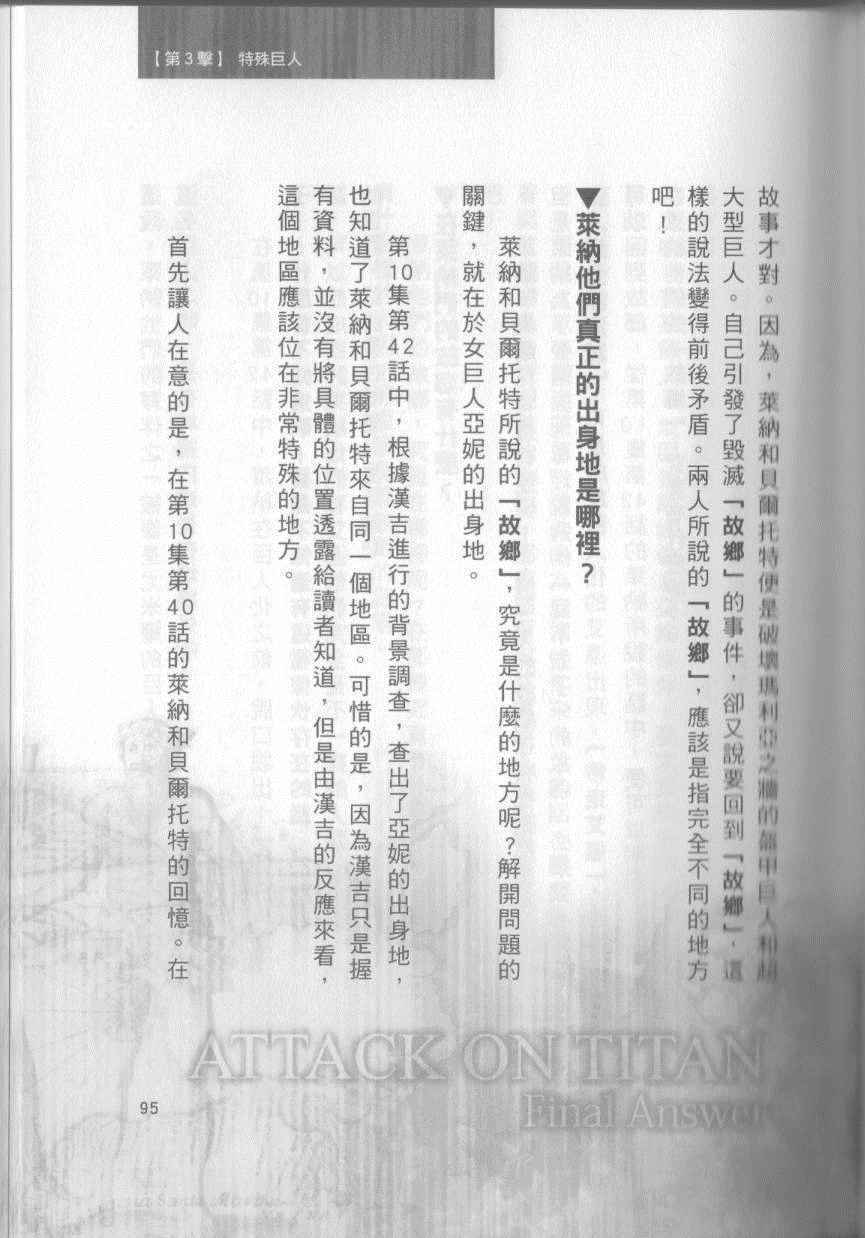 【第3擊】 特殊巨人
故事才對。因為，萊納和貝爾托特便是破壞瑪利亞之牆的鎧甲巨人和超
大型巨人。自己引發了毀滅「故鄉」的事件，卻又說要回到「故鄉」，這
樣的說法變得前後矛盾。兩人所說的「故鄉」，應該是指完全不同的地方
吧！
▼萊納他們真正的出身地是哪裡？
萊納和貝爾托特所說的「故鄉」，究竟是什麼的地方呢？解開問題的
關鍵，就在於女巨人亞妮的出身地。
第10集第42話中，根據漢吉進行的背景調查，查出了亞妮的出身地，
也知道了萊納和貝爾托特來自同一個地區。可惜的是，因為漢吉只是握
有資料，並沒有將具體的位置透露給讀者知道，但是由漢吉的反應來看，
這個地區應該位在非常特殊的地方。
首先讓人在意的是，在第10集第40話的萊納和貝爾托特的回憶。在
ATTACK ON TITAN
Final Answer
95